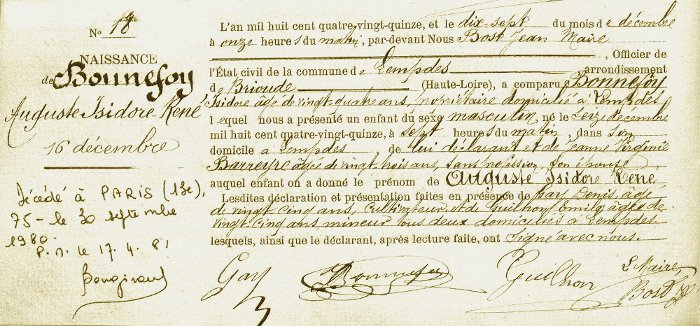 No 18
NAISSANCE
de Bonnefoy
Auguste Isidore René
16 décembre
Décédé à PARIS (13e)
75 - le 30 septembre
1980.
P. M. le 17. 4. 81
L'an mil huit cent quatre-vingt-quinze, et le dix-sept du mois de décembre
à onze heures du matin, par-devant Nous Bost Jean Maire
, Officier de
l'État civil de la commune de Lempdes arrondissement
de Brioude (Haute-Loire), a comparu Bonnefoy
Isidore âgé de vingt-quatre ans, propriétaire domicilié à Lempdes
lequel nous a présenté un enfant du sexe masculin, né le seize décembre
mil huit cent quatre-vingt-quinze, à sept heures du matin, dans son
domicile à Lempdes, de lui déclarant et de Jeanne Virginie
Barreyre âgée de vingt trois ans, sans profession, son épouse
auquel enfant on a donné le prénom de Auguste Isidore René
Lesdites déclaration et présentation faites en présence de Gay Denis, âgé
de vingt cinq ans, cultivateur et de Guilhon Emile âgé de
vingt-cinq ans mineur tous deux domiciliés à Lempdes
lesquels, ainsi que le déclarant, après lecture faite, ont signé avec nous.
Gay Bonnefoy Guilhon Le Maire,
Bost